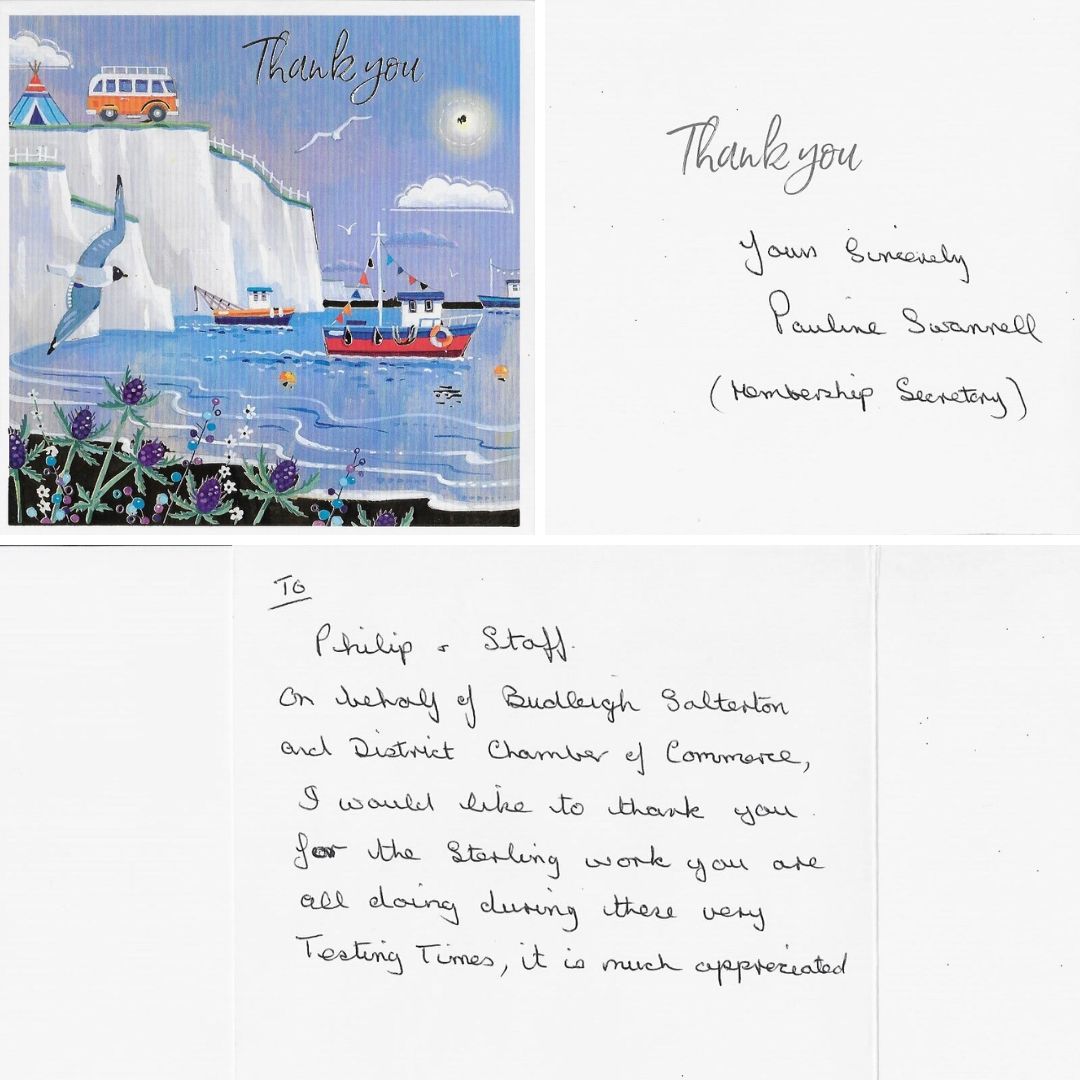 Thank you
Thank you
Yours Sincerely
Pauline Swannell
(Membership Secretary)
To
Philip & Staff.
On behalf of Budleigh Salterton
and District Chamber of Commerce,
I would like to thank you
for the Sterling work you are
all doing during these very
Testing Times, it is much appreciated